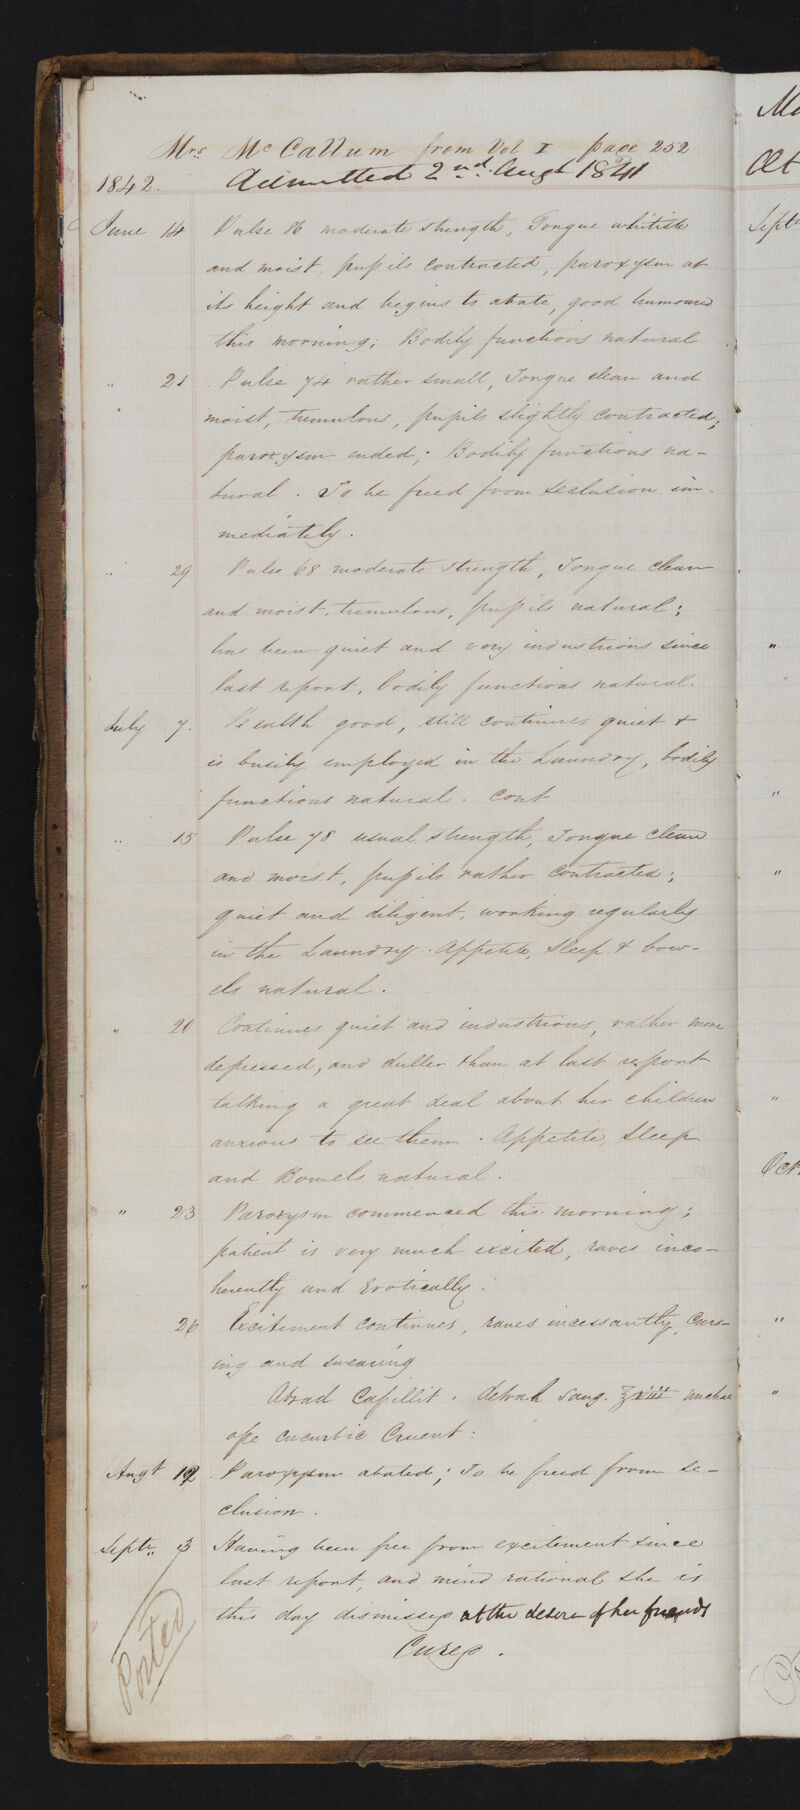 Mrs McCallum from Vol I page 252
1842. Admitted 2nd Augt 1841
June 14 Pulse 86 moderate strength, Tongue whitish
and moist, pupils contracted, paroxysm at
its height and begins to abate, good humoured
this morning; Bodily functions natural
" 21 Pulse 74 rather small, Tongue clean and
moist, tremulous, pupils slightly contracted;
paroxysm ended; Bodily functions na-
tural. To be freed from seclusion im-
mediately.
" 29 Pulse 68 moderate strength, Tongue clean
and moist, tremulous, pupils natural;
has been quiet and very industrious since
last report, bodily functions natural.
July 7. Health good, still continues quiet &
is busily employed in the Laundry, bodily
functions natural. Cont
" 15 Pulse 78 usual strength, Tongue clean
and moist, pupils rather contracted;
quiet and diligent, working regularly
in the Laundry. Appetite, Sleep & bow-
els natural.
" 20 Continues quiet and industrious, rather more
depressed, and duller than at last report
talking a great deal about her children
anxious to see them. Appetite, Sleep
and Bowels natural.
" 23 Paroxysm commenced this morning;
patient is very much excited, raves inco-
herently and Erotically.
26 Excitement continues, raves incessantly, Curs-
ing and swearing
Abrad Capillit. detrah Sang. ℥viii nuchae
ope cucurbit Cruent:
Augt 12 Paroxysm abated; To be freed from se-
clusion.
Septr. 3 Having been free from excitement since
last report, and mind rational she is
this day dismissed at the desire of her friends
Cured.
Posted
Septr
"
"
"
"
Oct
"
"